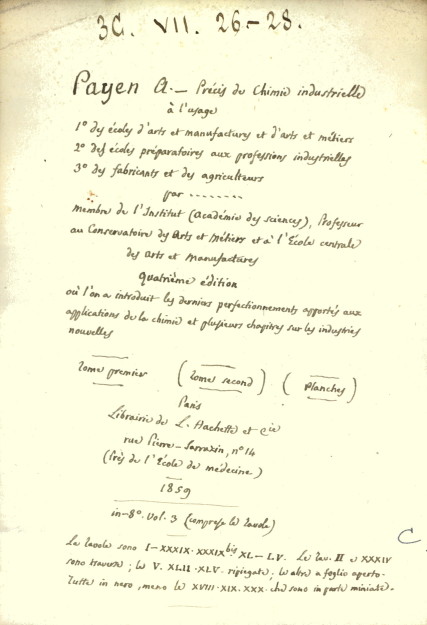 3G. VII. 26-28.
Payen A. — Précis de Chimie industrielle
à l'usage
1° des écoles d'arts et manufactures et d'arts et métiers
2° des écoles préparatoires aux professions industrielles
3° des fabricants et des agriculteurs
par ........
membre de l'Institut (Académie des sciences), Professeur
au Conservatoire des Arts et Métiers et à l'École centrale
des Arts et Manufactures
quatrième édition
où l'on a introduit les derniers perfectionnements apportés aux
applications de la chimie et plusieurs chapitres sur les industries
nouvelles
Tome premier (Tome second) (Planches)
Paris
Librairie de L. Hachette et Cie
rue Pierre-Sarrazin, n° 14
(Près de l'École de médecine)
1859
in-8°. Vol. 3 (comprese le tavole)
C
Le tavole sono I-XXXIX. XXXIX bis XL-LV. Le tav. II e XXXIV
sono traverse; le V. XLII. XLV. ripiegate; le altre a foglio aperto.
Tutte in nero, meno le XVIII. XIX. XXX. che sono in parte miniate.